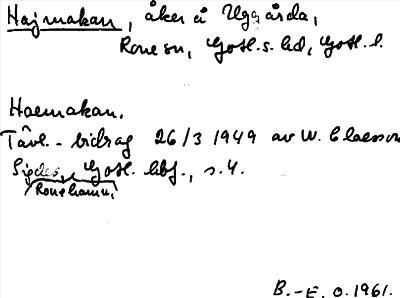 Hajmakan, åker å Uggårda,
Rone sn, Gotl. s. hd, Gotl. l.
Haemakan.
Tävl.-bidrag 26/3 1949 av W. Claesson
Gotl. hbf., s. 4.
Ronehamn,
B.-E. O. 1961.